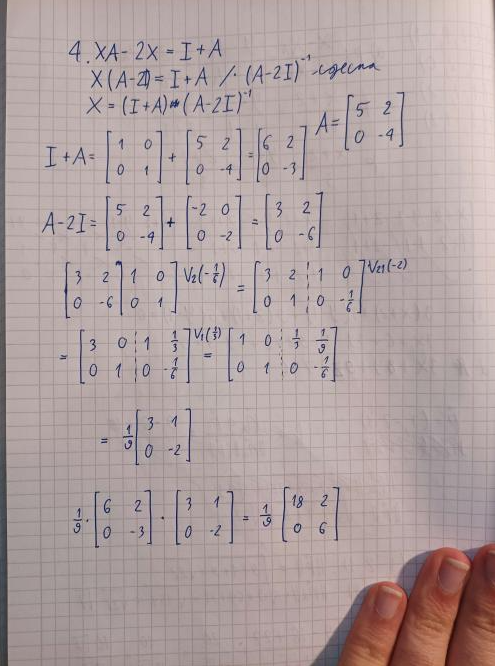 4. XA - 2X = I + A
X (A-2I) = I + A / · (A-2I)⁻¹ sdesna
X = (I+A) · (A-2I)⁻¹
A = [5 2; 0 -4]
I+A = [1 0; 0 1] + [5 2; 0 -4] = [6 2; 0 -3]
A-2I = [5 2; 0 -4] + [-2 0; 0 -2] = [3 2; 0 -6]
[3 2 | 1 0; 0 -6 | 0 1] V₂(-1/6) = [3 2 | 1 0; 0 1 | 0 -1/6] V₂₁(-2)
= [3 0 | 1 1/3; 0 1 | 0 -1/6] V₁(1/3) = [1 0 | 1/3 1/9; 0 1 | 0 -1/6]
= 1/9 [3 1; 0 -2]
1/9 · [6 2; 0 -3] · [3 1; 0 -2] = 1/9 [18 2; 0 6]